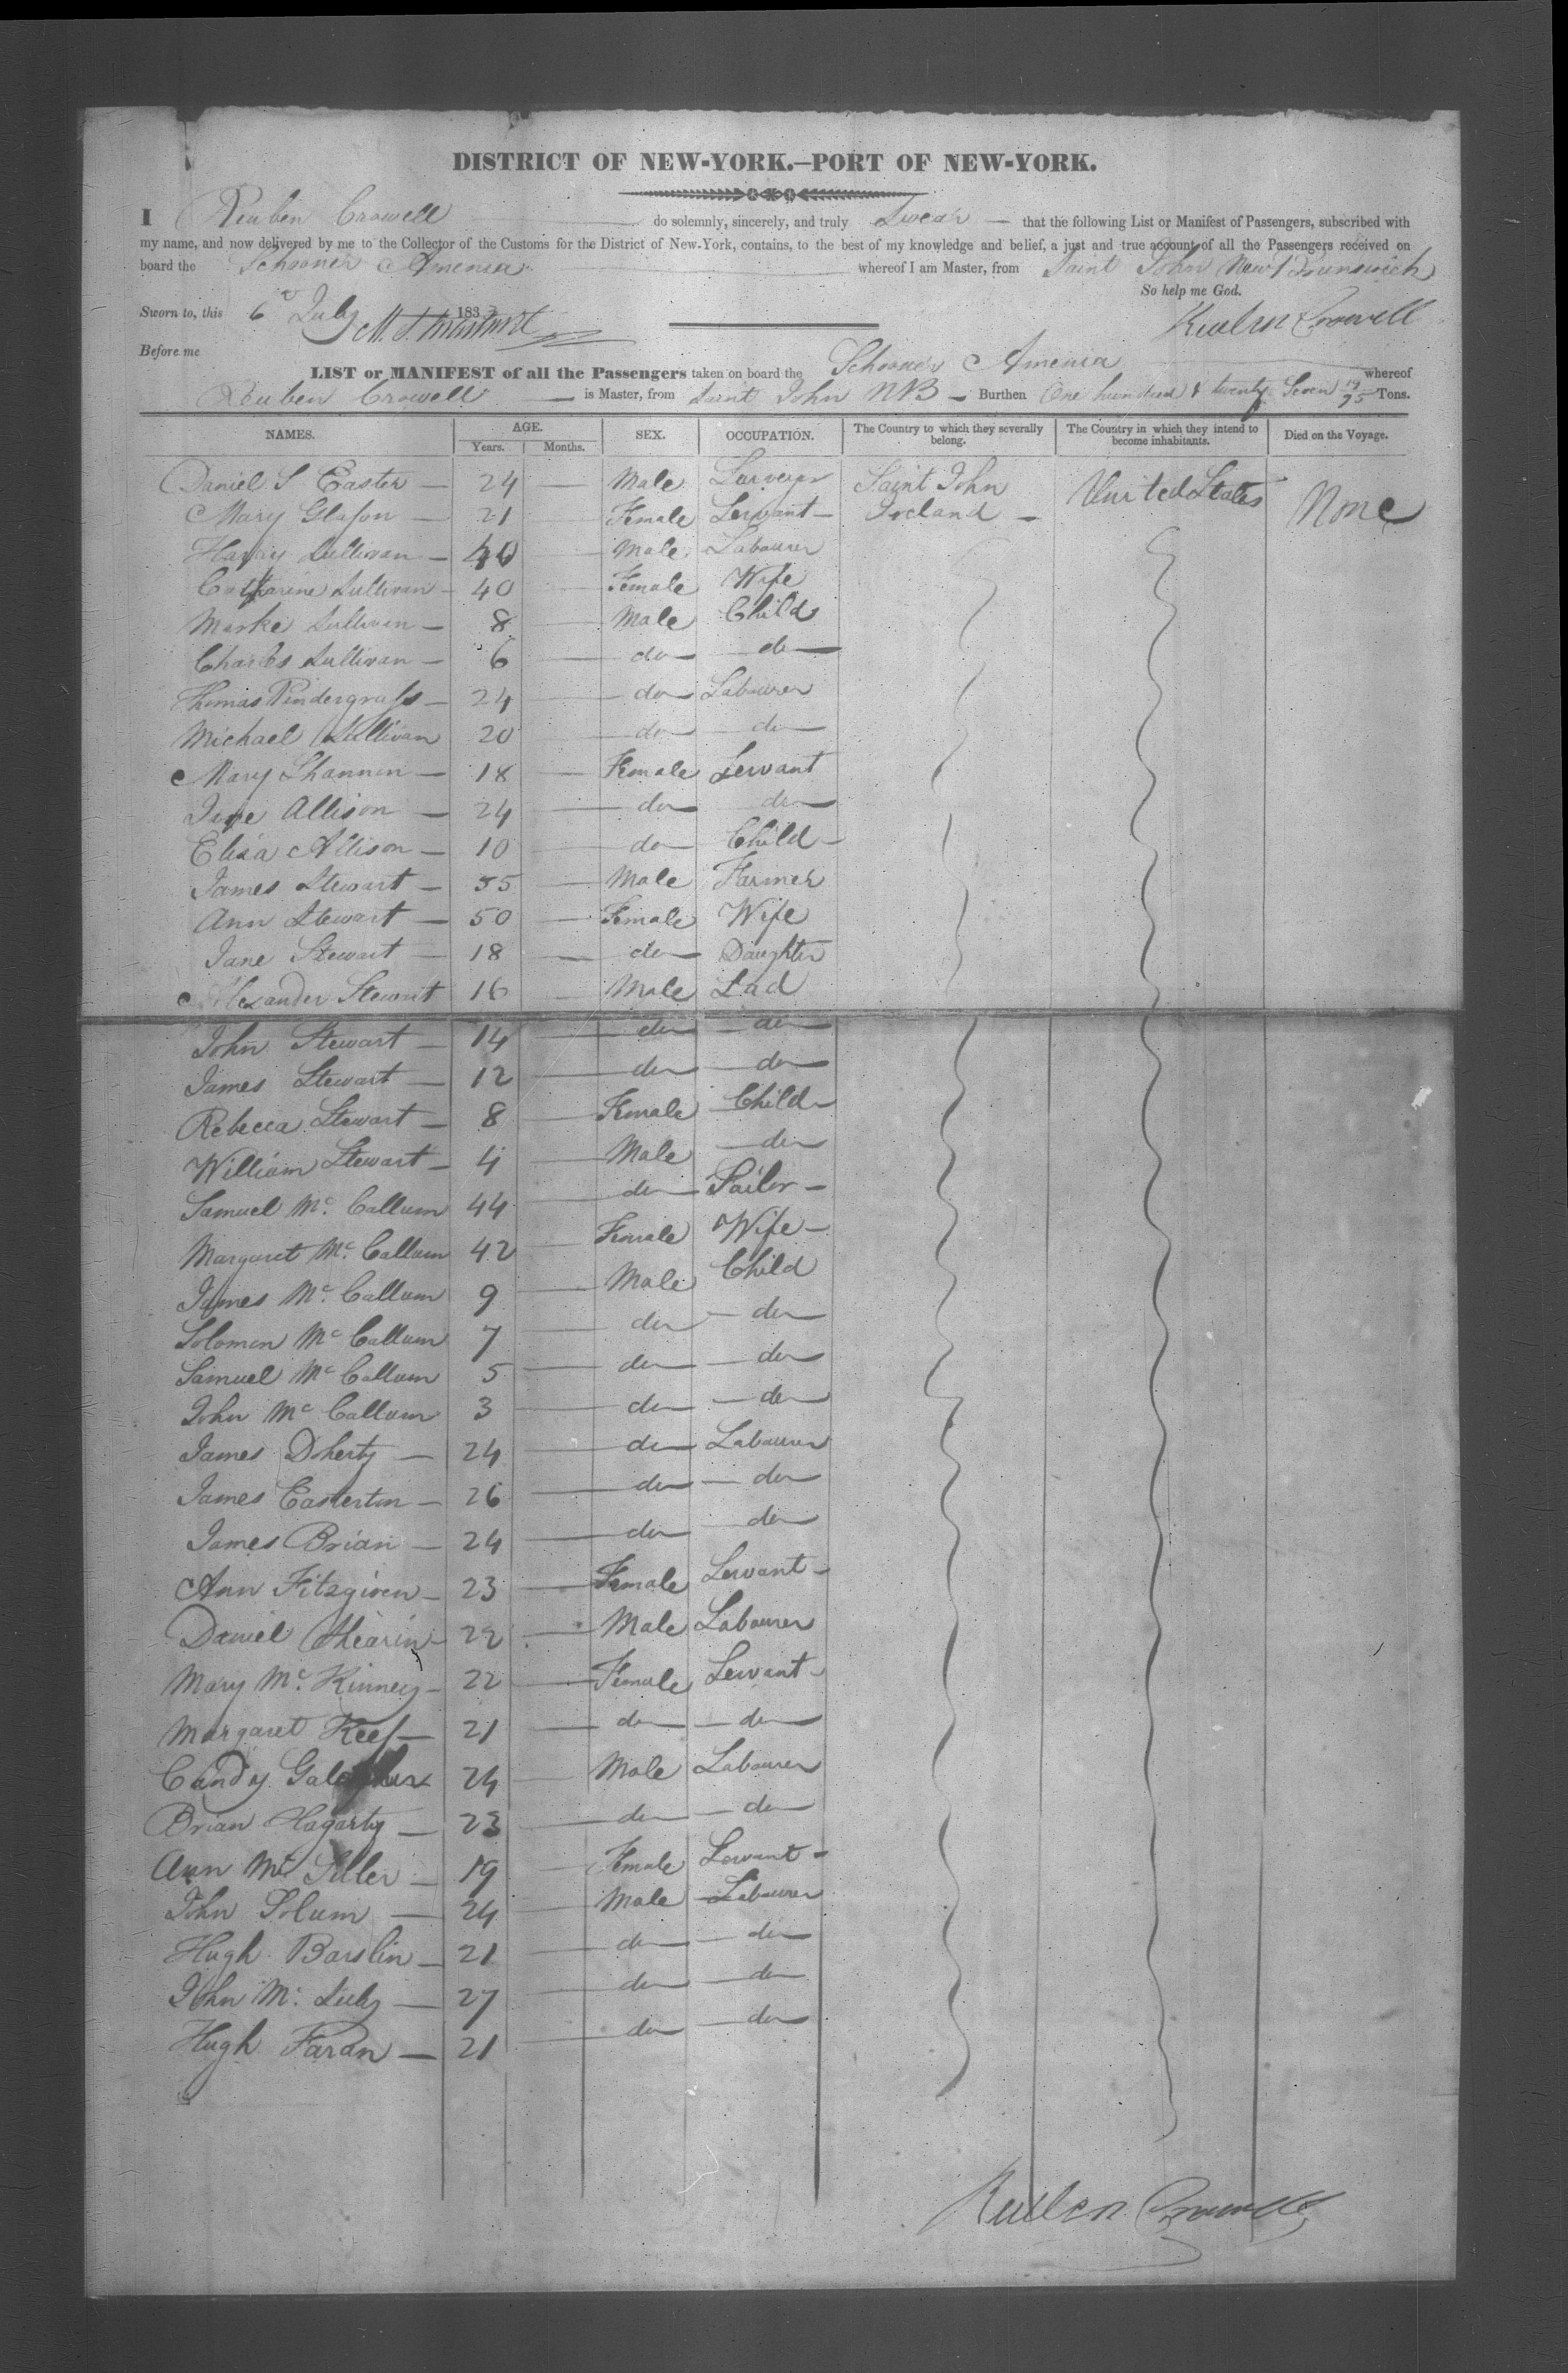 DISTRICT OF NEW-YORK.—PORT OF NEW-YORK.
I Reuben Crowell — do solemnly, sincerely, and truly Swear — that the following List or Manifest of Passengers, subscribed with
my name, and now delivered by me to the Collector of the Customs for the District of New-York, contains, to the best of my knowledge and belief, a just and true account of all the Passengers received on
board the Schooner Amenia whereof I am Master, from Saint John New Brunswick
So help me God.
Sworn to, this 6 July 183 Reuben Crowell
Before me
LIST or MANIFEST of all the Passengers taken on board the Schooner Amenia whereof
Reuben Crowell — is Master, from Saint John NB — Burthen One hundred & twenty Seven 19/95 Tons.
NAMES. AGE. Years. Months. SEX. OCCUPATION. The Country to which they severally belong. The Country in which they intend to become inhabitants. Died on the Voyage.
Daniel S Easter — 24 — Male Surveyor Saint John United States None
Mary Glason — 21 — Female Servant — Ireland —
Harvy Sullivan — 40 — Male Labourer
Catharine Sullivan — 40 — Female Wife
Marke Sullivan — 8 — Male Child
Charles Sullivan — 6 — do — do —
Thomas Pindergrass — 24 — do — Labourer
Michael Sullivan 20 — do — do —
Mary Shannon — 18 — Female Servant
Jane Allison — 24 — do — do —
Eliza Allison — 10 — do — Child —
James Stewart — 55 — Male Farmer
Ann Stewart — 50 — Female Wife
Jane Stewart — 18 — do — Daughter
Alexander Stewart 16 — Male Lad
John Stewart — 14 — do — do —
James Stewart — 12 — do — do —
Rebecca Stewart — 8 — Female Child —
William Stewart — 4 — Male — do —
Samuel Mc Callum 44 — do — Sailor —
Margaret Mc Callum 42 — Female Wife —
James Mc Callum 9 — Male Child
Solomon Mc Callum 7 — do — do —
Samuel Mc Callum 5 — do — do —
John Mc Callum 3 — do — do —
James Doherty — 24 — do — Labourer
James Easterton — 26 — do — do —
James Brian — 24 — do — do —
Ann Fitzgiven — 23 — Female Servant —
Daniel Hearin — 22 — Male Labourer
Mary Mc Kinney — 22 — Female Servant —
Margaret Keef — 21 — do — do —
Candy 24 — Male Labourer
Brian Hagarty — 23 — do — do —
Ann Mc — 19 — Female Servant —
John Solum — 24 — Male Labourer
Hugh Barslin — 21 — do — do —
John Mc — 27 — do — do —
Hugh Faran — 21 — do — do —
Reuben Crowell